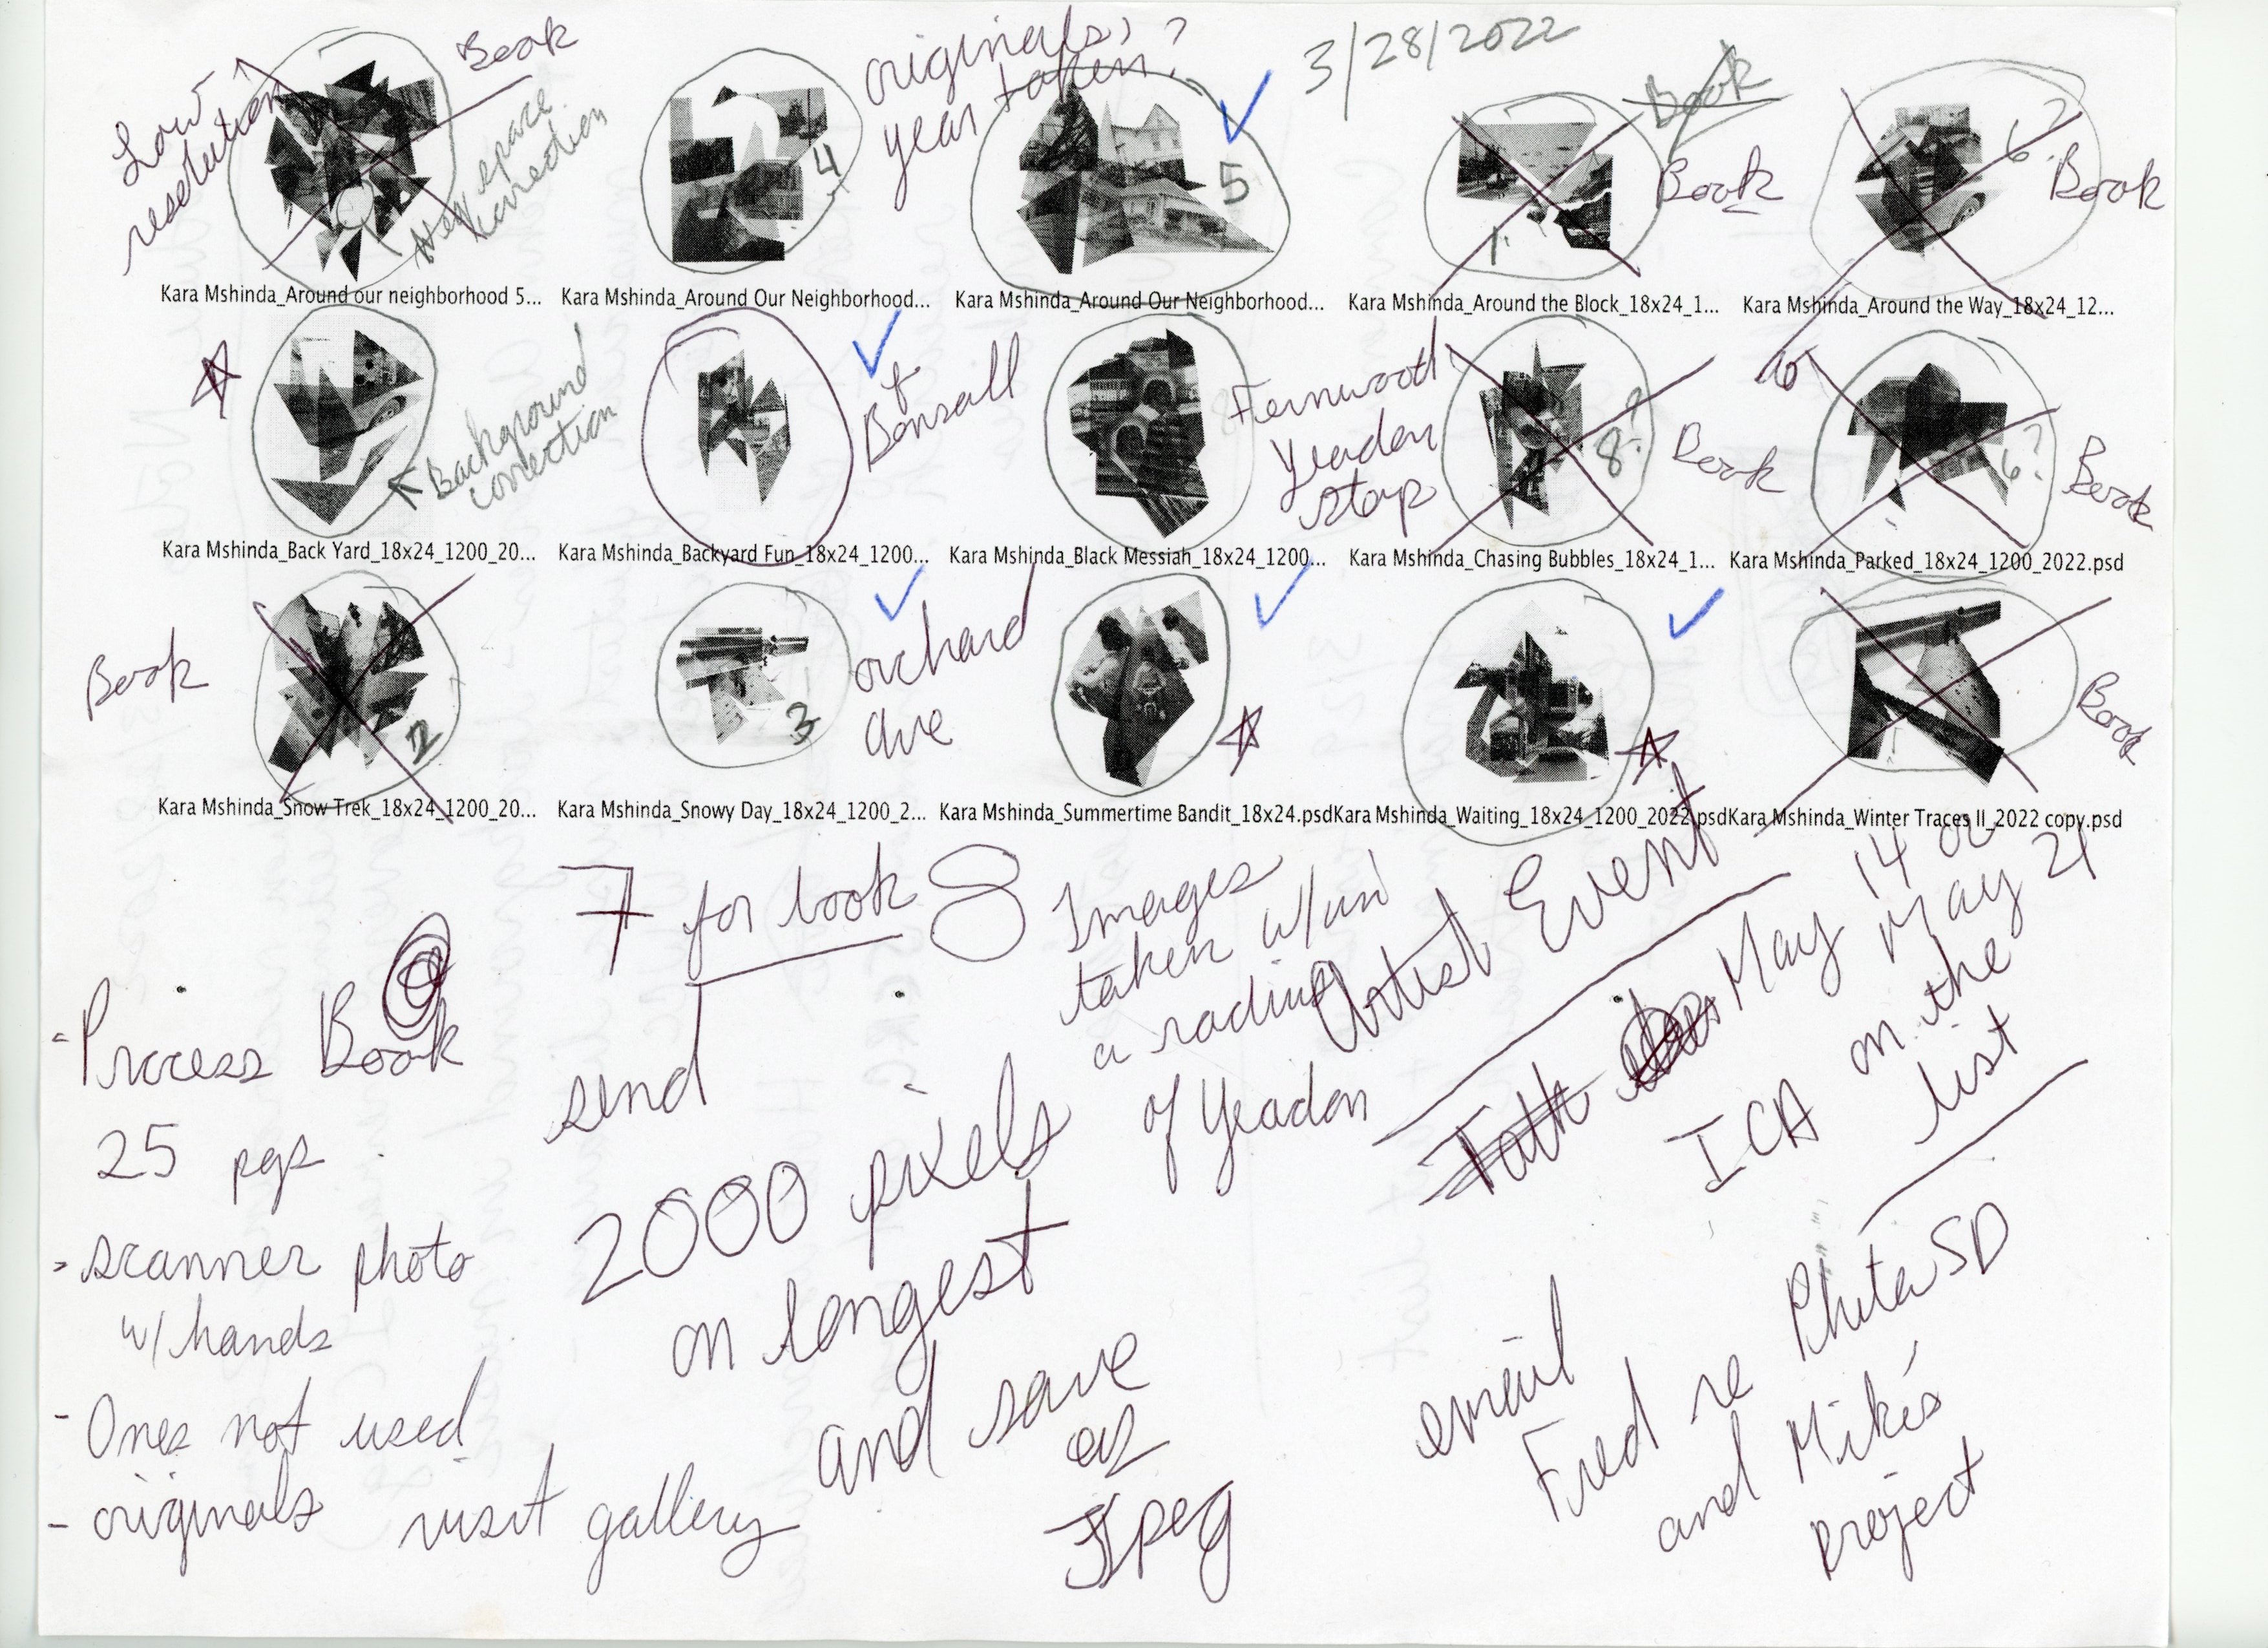 Low
resolution
Book
originals,
year taken?
3/28/2022
Book
Book
Book
4
5
1.
6?
Kara Mshinda_Around our neighborhood 5...
Kara Mshinda_Around Our Neighborhood...
Kara Mshinda_Around Our Neighborhood...
Kara Mshinda_Around the Block_18x24_1...
Kara Mshinda_Around the Way_18x24_12...
Background
correction
Bonsall
Fernwood
Yeadon
stop
8?
Book
6?
Book
Kara Mshinda_Back Yard_18x24_1200_20...
Kara Mshinda_Backyard Fun_18x24_1200...
Kara Mshinda_Black Messiah_18x24_1200...
Kara Mshinda_Chasing Bubbles_18x24_1...
Kara Mshinda_Parked_18x24_1200_2022.psd
Book
2
3
orchard
ave
Book
Kara Mshinda_Snow Trek_18x24_1200_20...
Kara Mshinda_Snowy Day_18x24_1200_2...
Kara Mshinda_Summertime Bandit_18x24.psd
Kara Mshinda_Waiting_18x24_1200_2022.psd
Kara Mshinda_Winter Traces II_2022 copy.psd
7 for book
8 Images
taken w/in
a radius
of Yeadon
Artist Event
May 14 or
May 21
ICA on the
list
- Process Book
25 pgs
- scanner photo
w/ hands
- Ones not used
- originals
visit gallery
send
2000 pixels
on longest
and save
as
Jpeg
email
Fred re PhilaSD
and Mike's
project